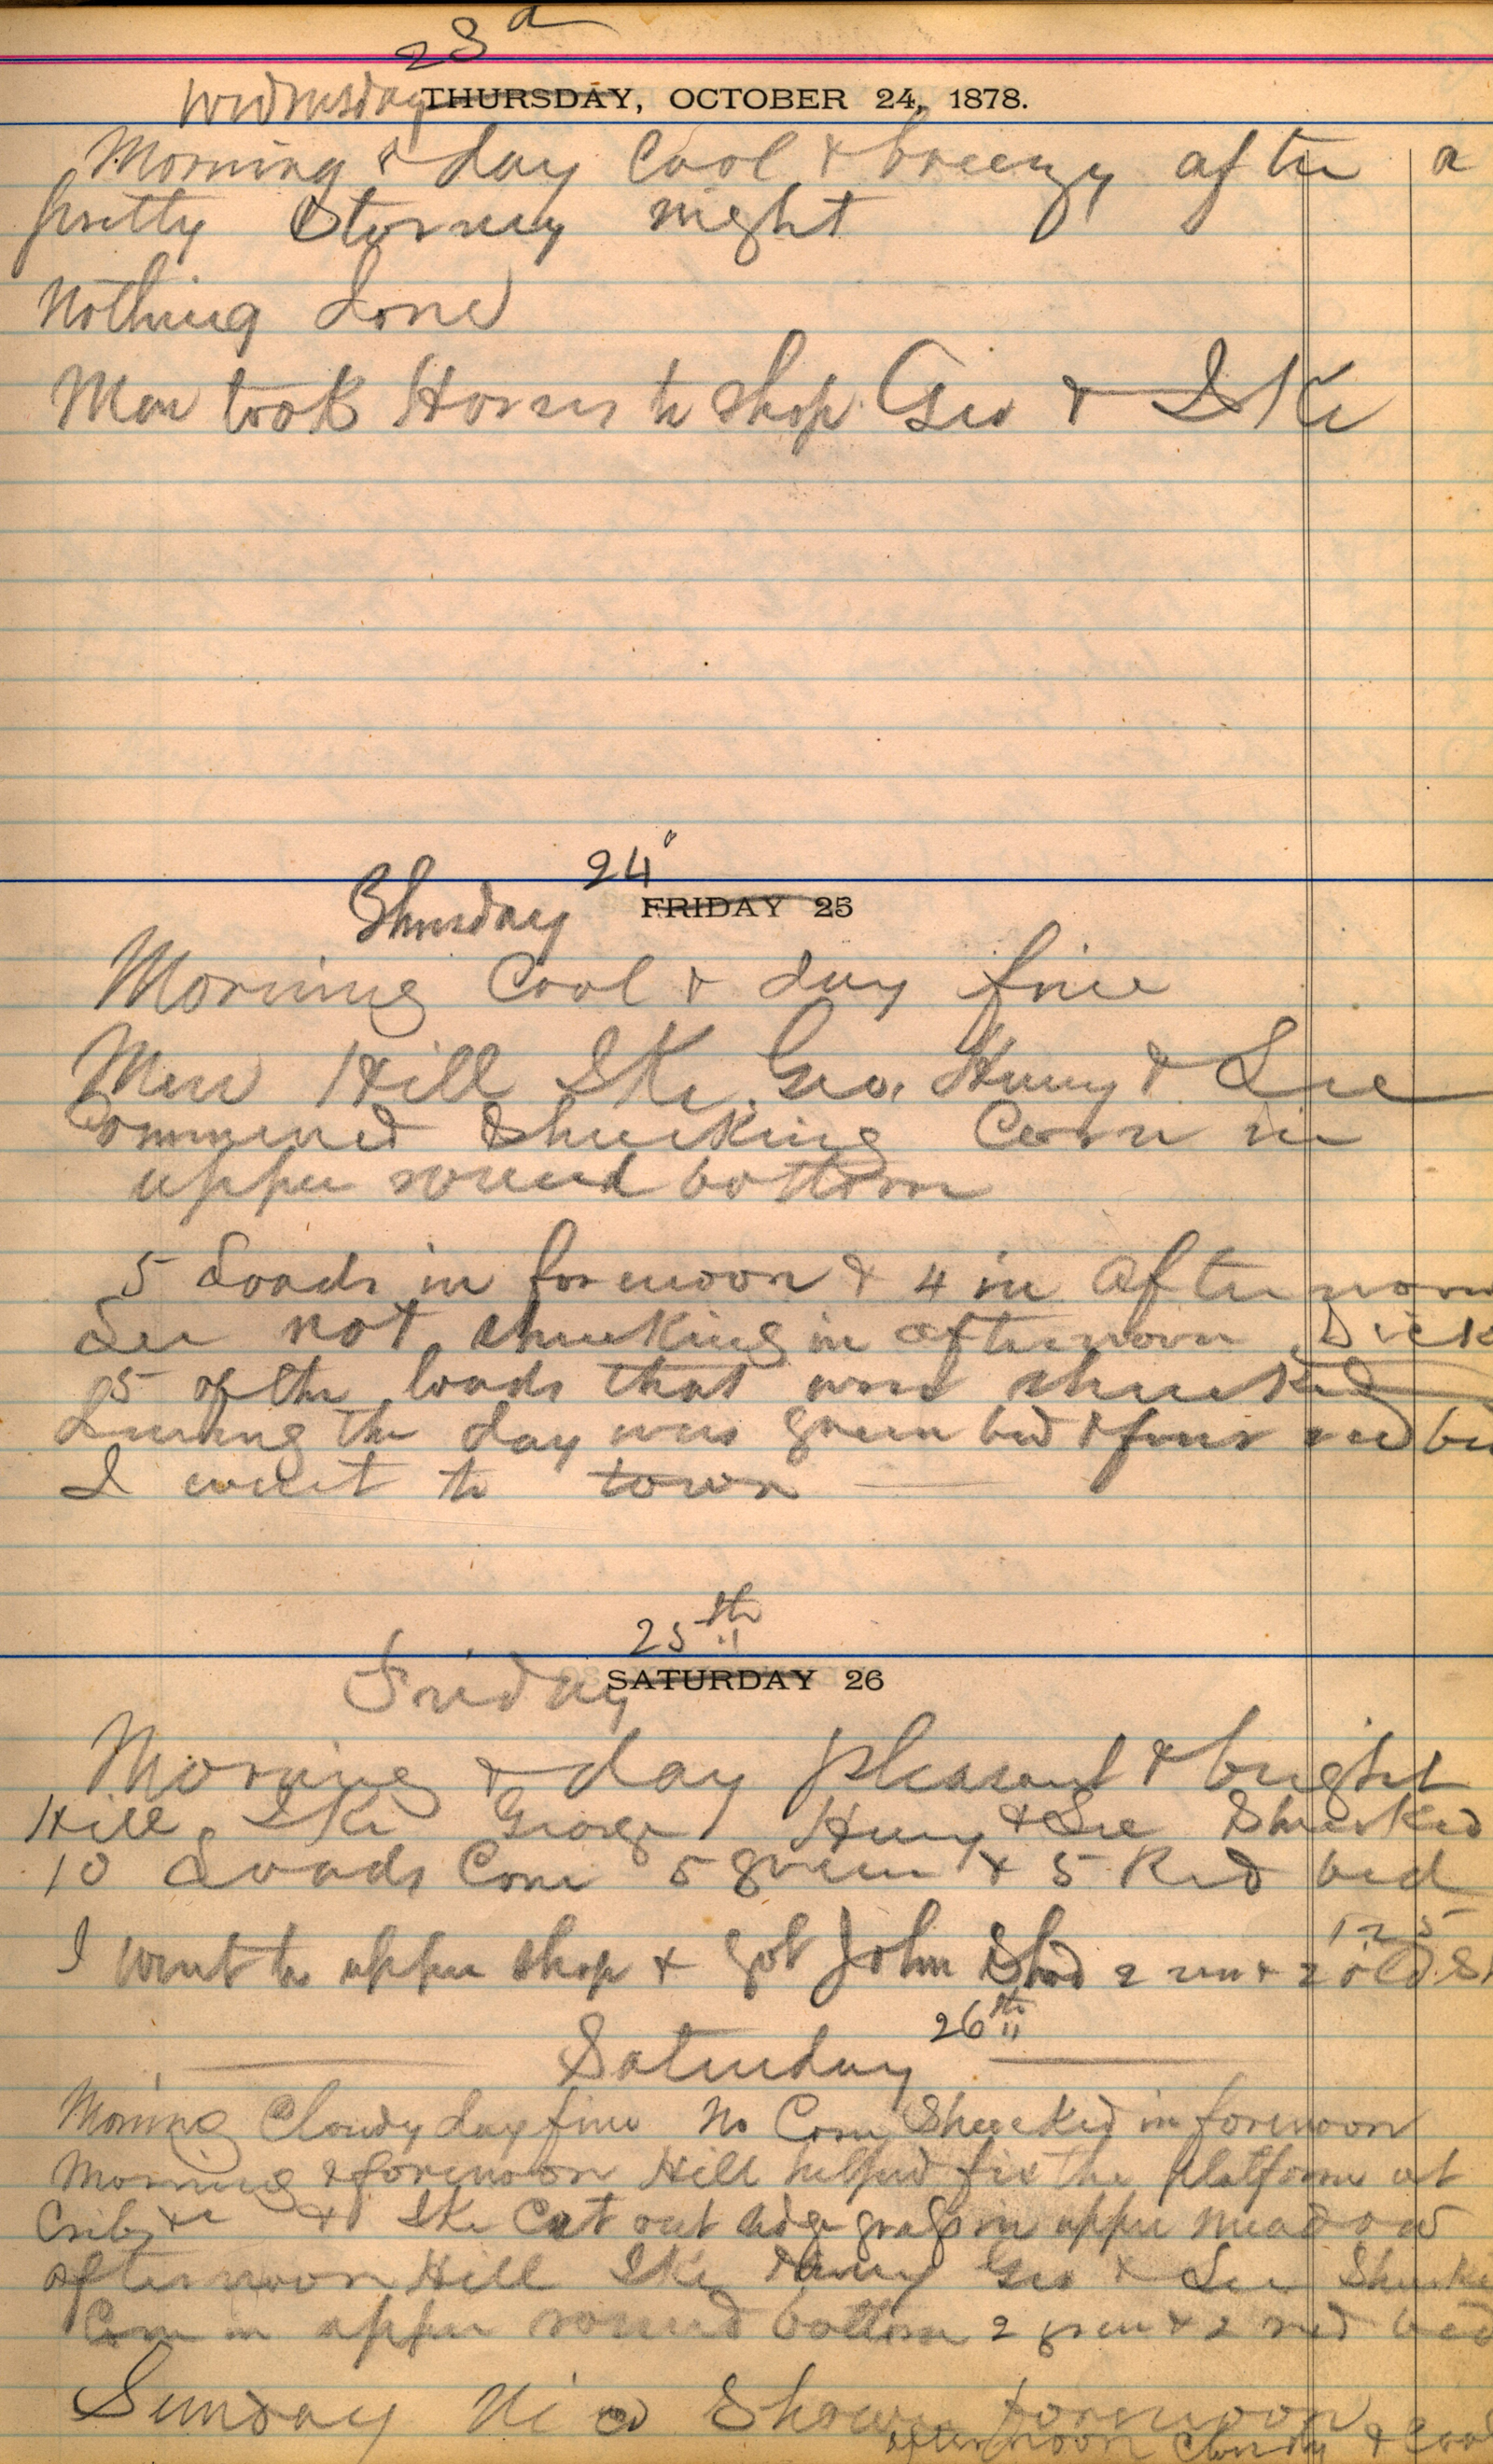 23d
Wednesday THURSDAY, OCTOBER 24, 1878.
Morning & day Cool & breezy after a
pretty Stormy night
Nothing done
Men took Horses to shop Geo & Ike
24"
Thursday FRIDAY 25
Morning Cool & day fine
Men Hill Ike Geo. Henry & Lee
Commenced Shucking Corn in
upper round bottom
5 Loads in forenoon & 4 in afternoon
Lee not shucking in afternoon Sick
5 of the loads that was shucked
during the day was green bed & four red bed
I went to town
25th
Friday SATURDAY 26
Morning & day pleasant & bright
Hill Ike George Henry & Lee Shucked
10 Loads Corn 5 green & 5 Red bed
125
I went to upper shop & got John Shod 2 new & 2 old
26th
Saturday
Morning Cloudy day fine No Corn Shucked in forenoon
Morning & forenoon Hill helped fix the platform at
Crib & Ike Cut out grass in upper meadow
afternoon Hill Ike Henry Geo & Lee
Corn in upper round bottom 2 green & 2 red bed
Sunday forenoon
afternoon Cloudy & Cool